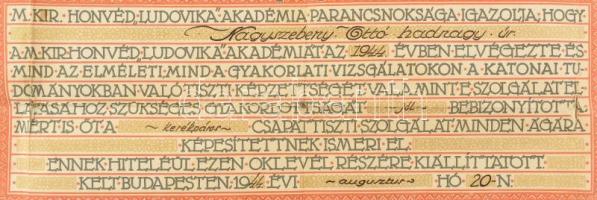 M. KIR. HONVÉD „LUDOVIKA" AKADÉMIA PARANCSNOKSÁGA IGAZOLJA, HOGY
Nagyszebeny Ottó hadnagy úr
A M. KIR. HONVÉD „LUDOVIKA" AKADÉMIÁT AZ 1944 ÉVBEN ELVÉGEZTE ÉS
MIND AZ ELMÉLETI, MIND A GYAKORLATI VIZSGÁLATOKON A KATONAI TU-
DOMÁNYOKBAN VALÓ TISZTI KÉPZETTSÉGÉT, VALAMINT E SZOLGÁLAT EL-
LÁTÁSÁHOZ SZÜKSÉGES GYAKORLOTTSÁGÁT jól BEBIZONYÍTOTTA,
MIÉRT IS ŐT A kerékpáros CSAPATTISZTI SZOLGÁLAT MINDEN ÁGÁRA
KÉPESÍTETTNEK ISMERI EL.
ENNEK HITELÉÜL EZEN OKLEVÉL RÉSZÉRE KIÁLLÍTTATOTT.
KELT BUDAPESTEN, 1944 ÉVI augusztus HÓ 20-N.